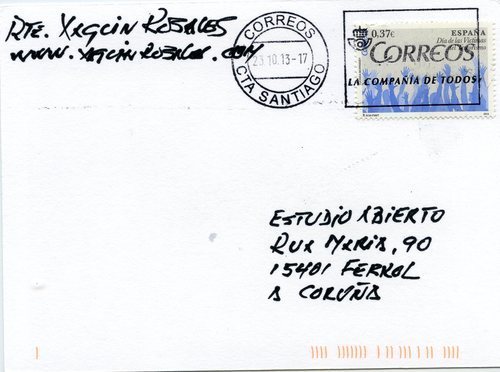 RTE. YAGCIN ROSALES
WWW.YAGCINROSALES.COM
CORREOS
23.10.13-17
CTA SANTIAGO
0.37€
ESPAÑA
Día de las Víctimas
CORREOS
LA COMPAÑIA DE TODOS
ESTUDIO ABIERTO
RUA MARIA, 90
15401 FERROL
A CORUÑA